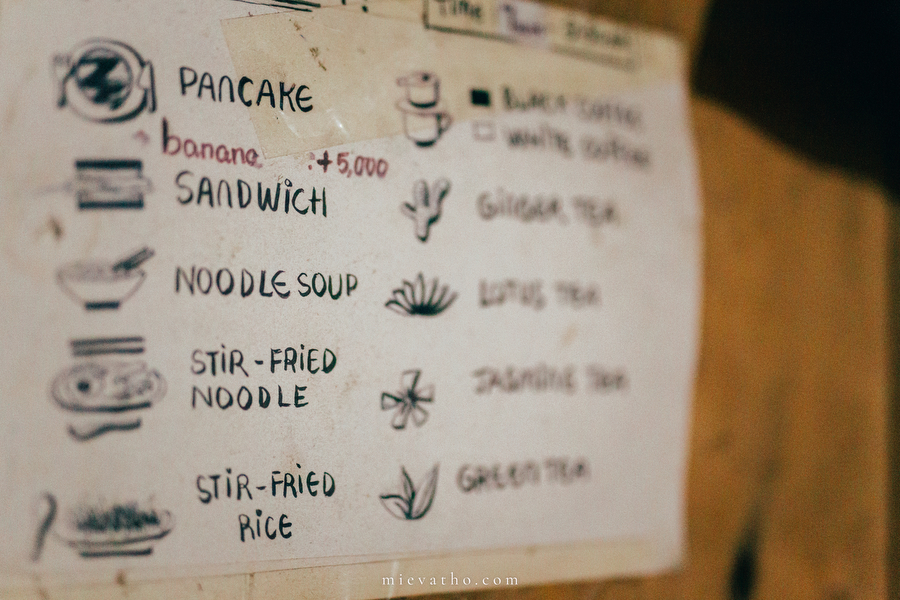 Time
PANCAKE
banana :+5,000
SANDWICH
NOODLE SOUP
STIR-FRIED
NOODLE
STIR-FRIED
RICE
BLACK COFFEE
WHITE COFFEE
GINGER TEA
LOTUS TEA
JASMINE TEA
GREEN TEA
mievatho.com